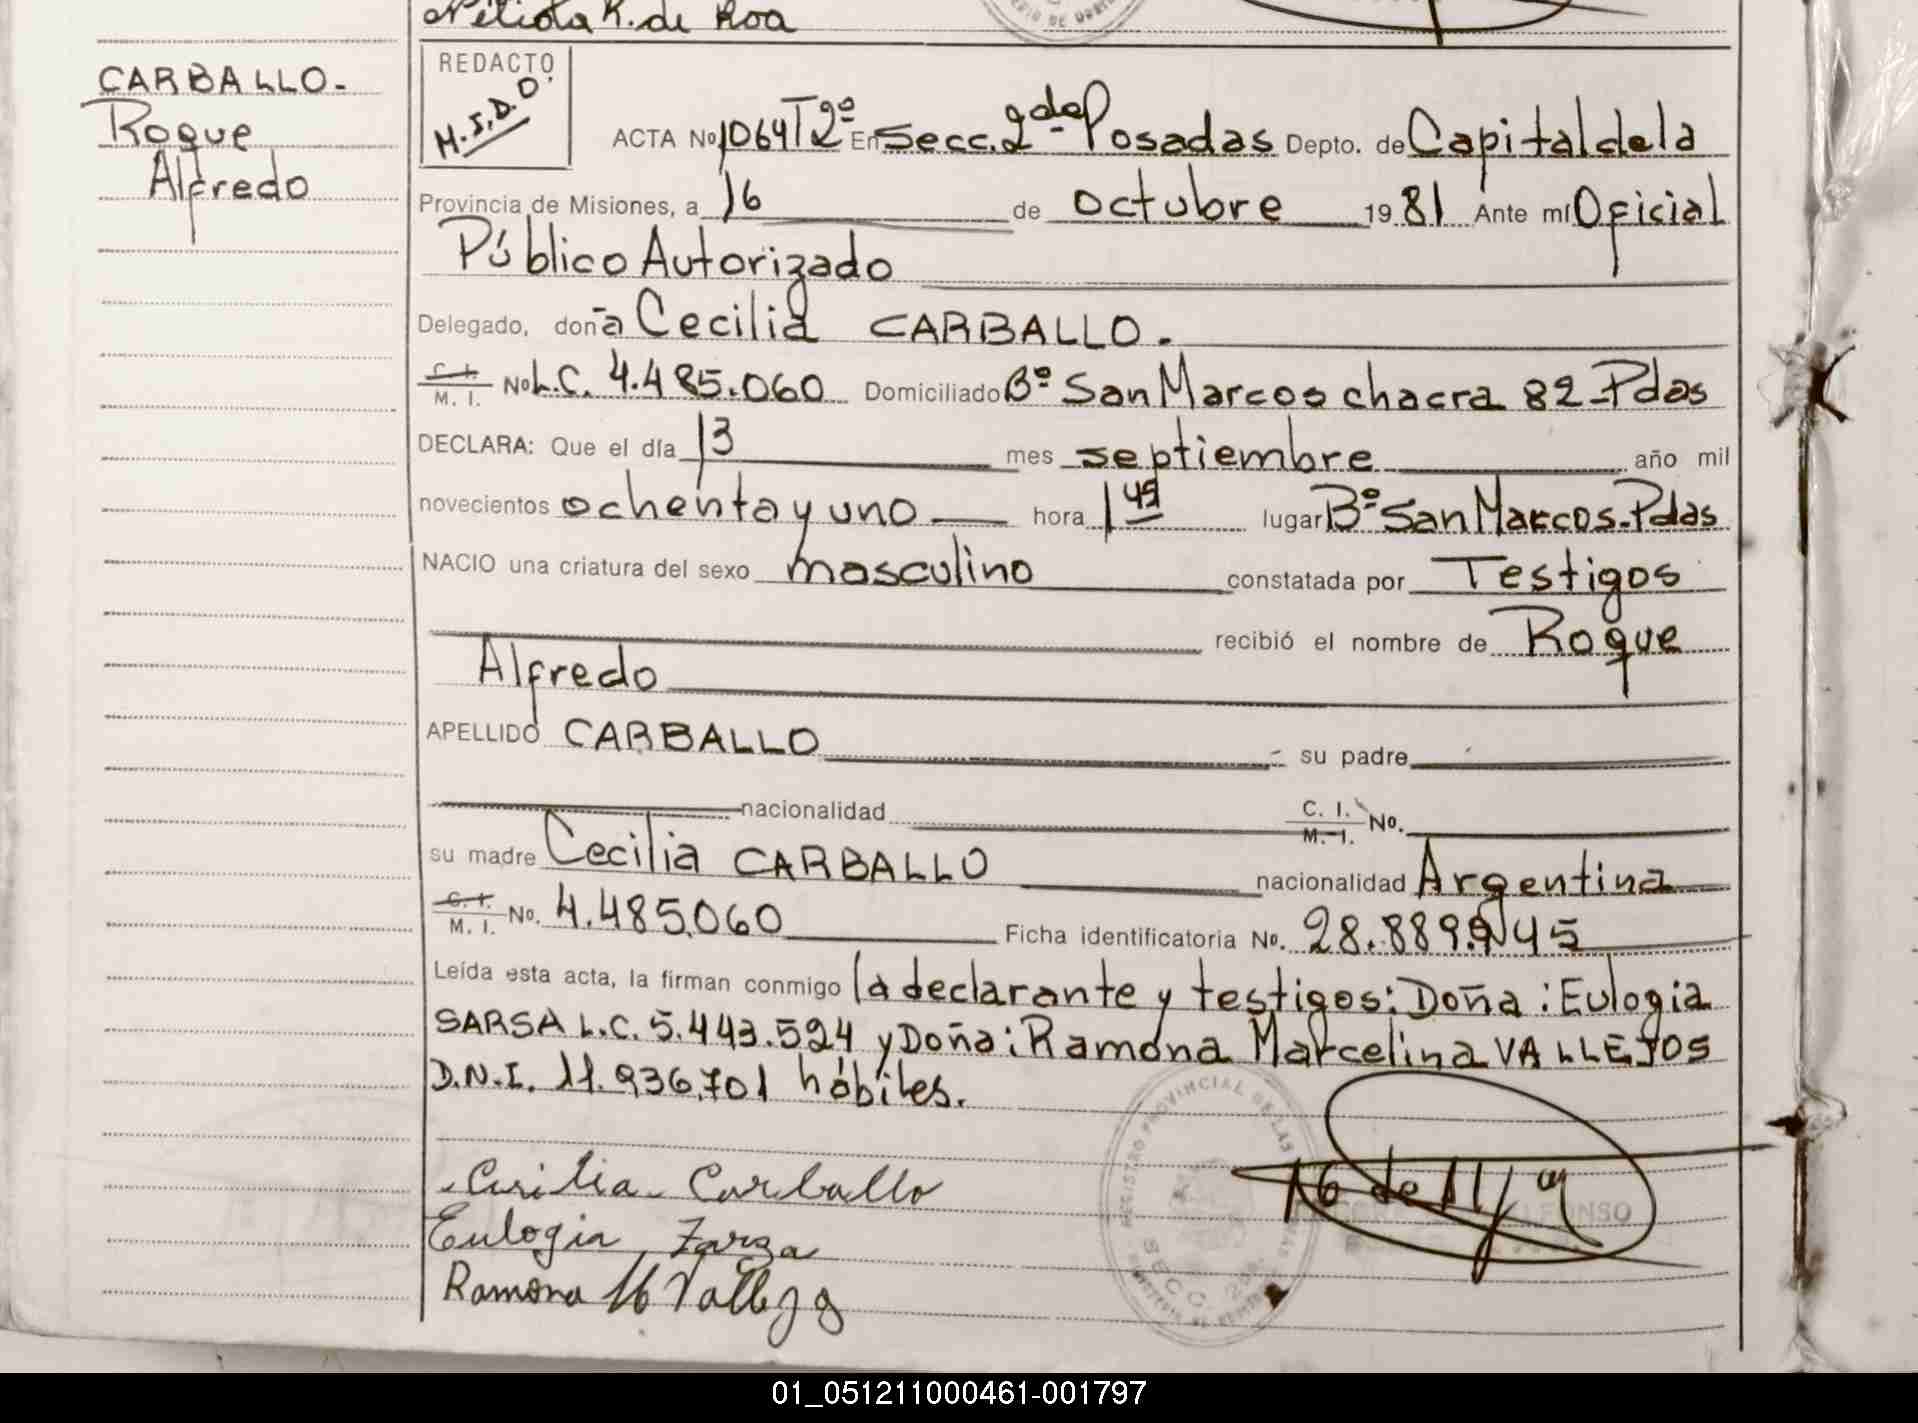 Roa
CARBALLO.
Roque
Alfredo
REDACTO
M.S.D.O.
ACTA No 1064 Tº2º En Secc. 2da Posadas Depto. de Capital de la
Provincia de Misiones, a 16 de octubre 1981 Ante mí Oficial
Público Autorizado
Delegado, doña Cecilia CARBALLO.
C. I. / M. I. No L.C. 4.485.060 Domiciliado Bº San Marcos chacra 82-Pdas
DECLARA: Que el día 13 mes septiembre año mil
novecientos ochenta y uno hora 1 45 lugar Bº San Marcos-Pdas
NACIO una criatura del sexo masculino constatada por Testigos
recibió el nombre de Roque
Alfredo
APELLIDO CARBALLO su padre
nacionalidad C. I. / M. I. No.
su madre Cecilia CARBALLO nacionalidad Argentina
C. I. / M. I. No. 4.485.060 Ficha identificatoria No. 28.889.945
Leída esta acta, la firman conmigo la declarante y testigos: Doña: Eulogia
SARSA L.C. 5.443.524 y Doña: Ramona Marcelina VALLEJOS
D.N.I. 11.936.701 hábiles.
REGISTRO PROVINCIAL DE LAS
SECC. 2da.
Cecilia Carballo
Eulogia Zarza
Ramona M Vallejo
16 de 11/
01_051211000461-001797